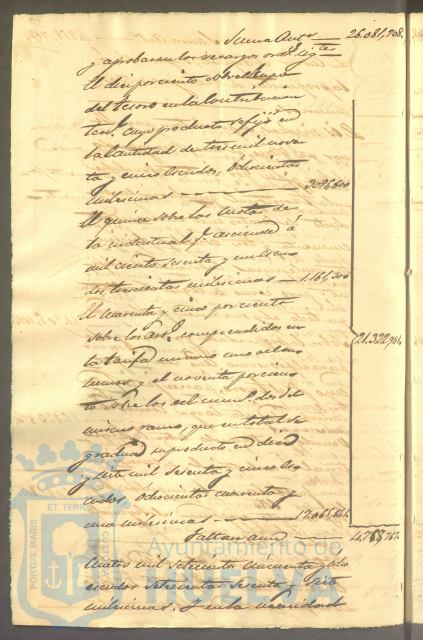 Suma Antr. 26.081,708.
y aprobaron los recargos ord.s sig.tes
El diez por ciento sobre el cupo
del tesoro en la Contribucion
terr.l cuyo producto se fijó en
la Cantidad de tres mil noven
ta y cinco escudos, ochocientas
milesimas 3095,800
El quince sobre las Cuotas de
la industrial q.e asciende á
mil ciento sesenta y un escu
dos trescientas milesimas 1.161,300
El Cuarenta y cinco por ciento
sobre los comprendidos en
la tarifa numero uno
21.322,941.
y el noventa por cien
to sobre los del
mismo ramo, que en total se
graduó su producto en diez
y siete mil sesenta y cinco es
cudos, ochocientas cuarenta y
una milesimas 17.065,841.
Faltan aun 4.758,767.
Cuatro mil setecientos cincuenta y ocho
escudos setecientas sesenta y siete
milesimas. Y en la necesidad
PORTUS MARIS ET TERRAE
Ayuntamiento de
HUELVA